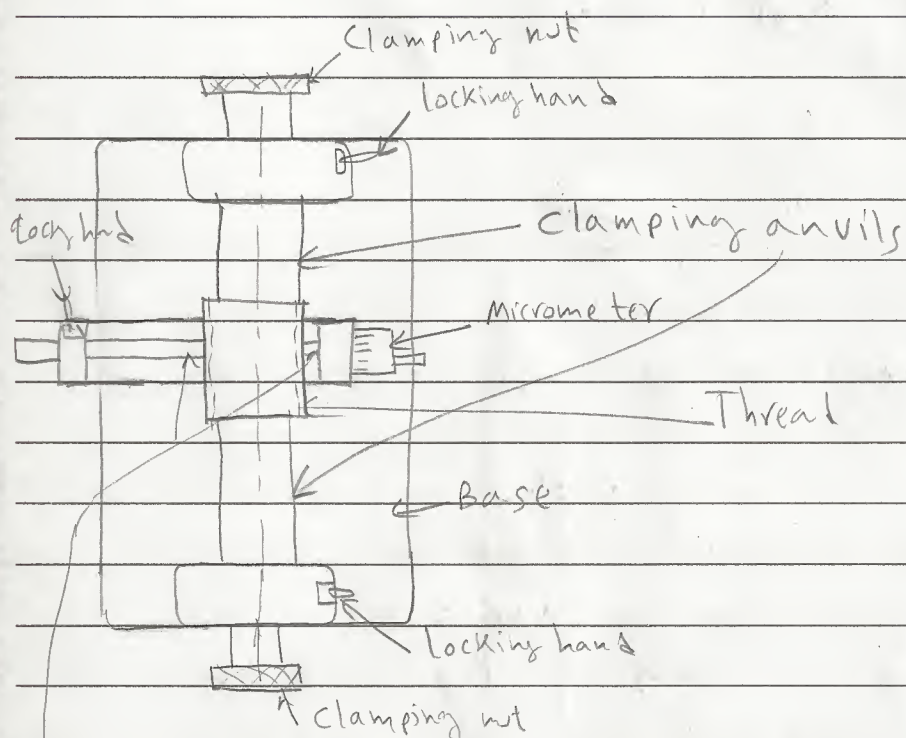 Clamping nut
locking hand
Clamping anvils
Micrometer
Thread
Base
locking hand
Clamping nut